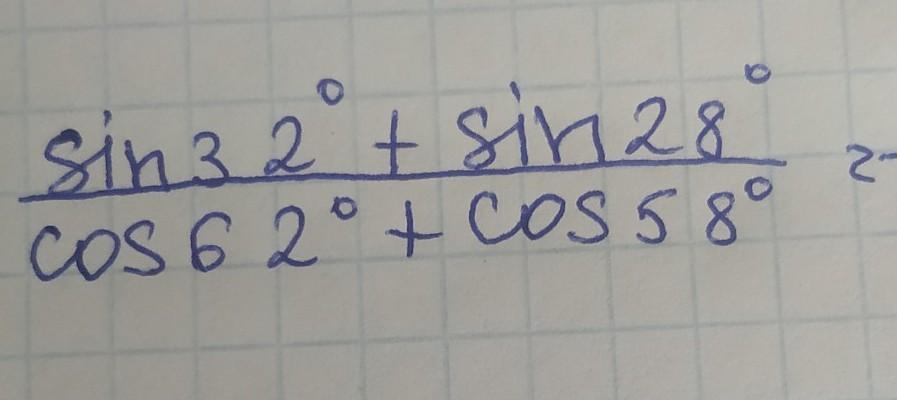 sin32° + sin28°
cos62° + cos58° =